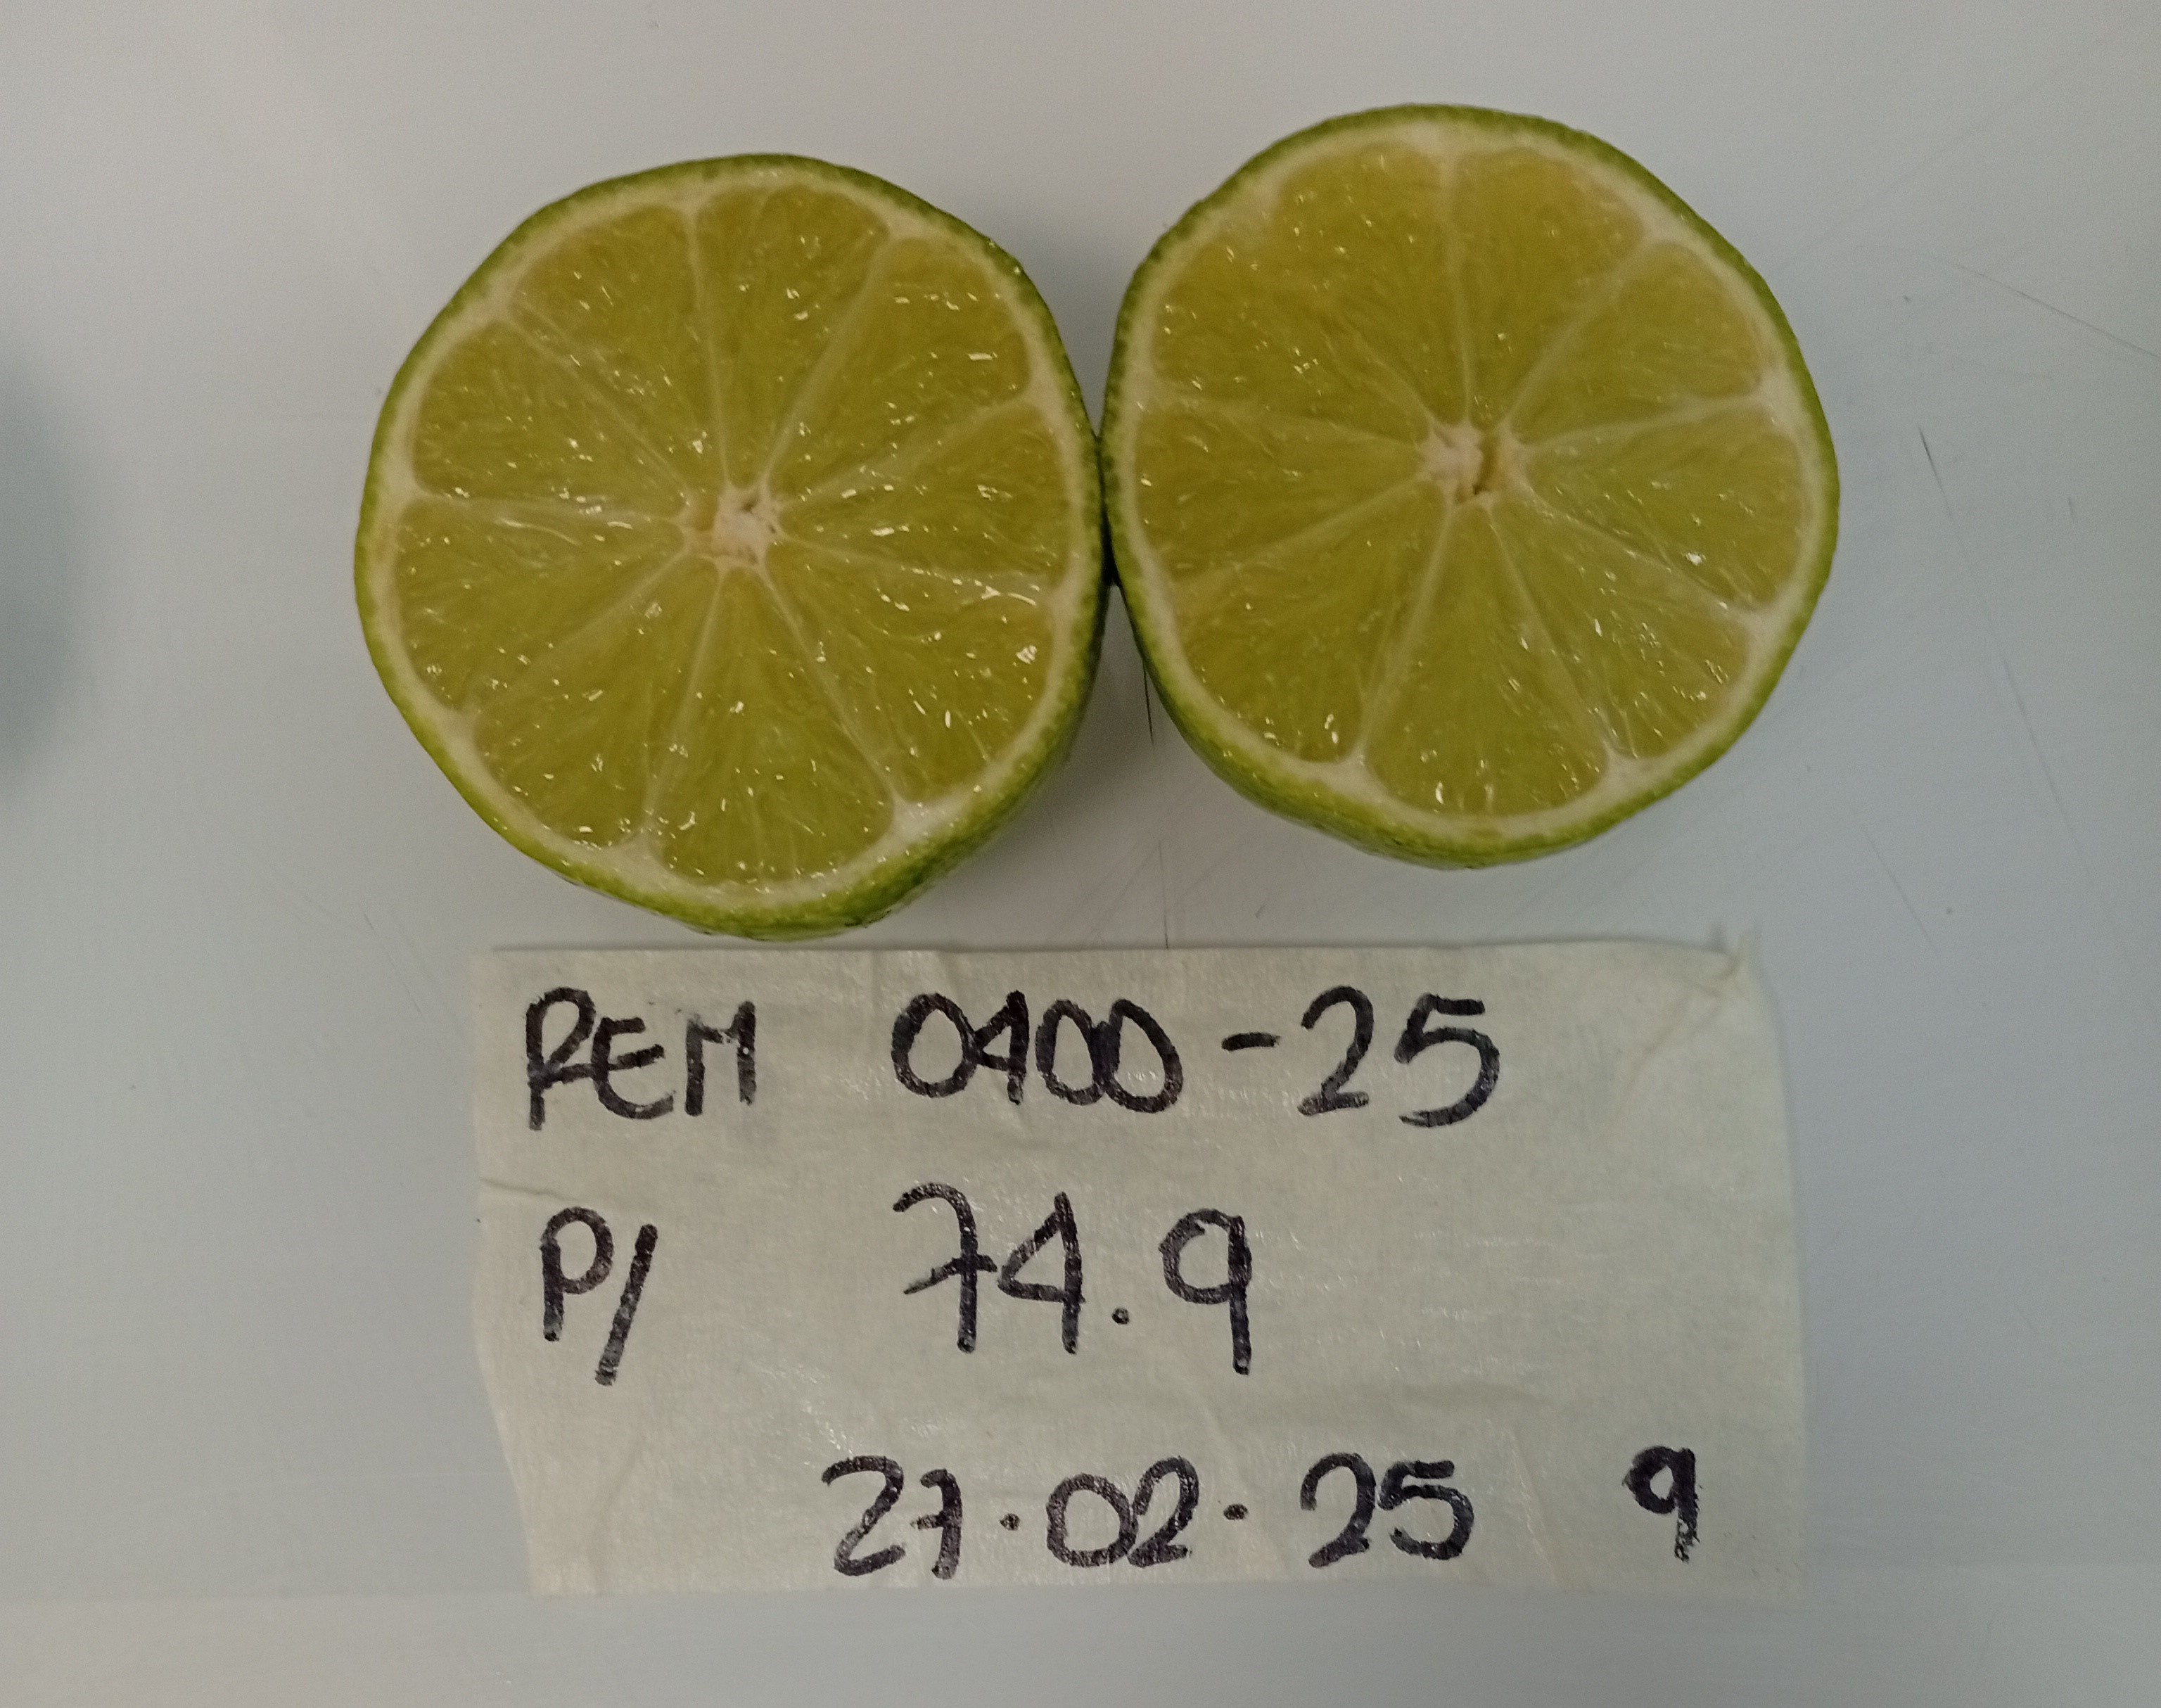 REM 0400-25
P/ 74.9
27.02.25 9